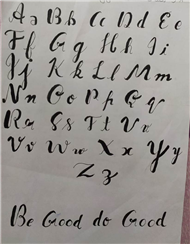 Aa Bb Cc Dd Ee
Ff Gg Hh Ii
Jj Kk Ll Mm
Nn Oo Pp Qq
Rr Ss Tt Uu
Vv Ww Xx Yy
Zz
Be Good do Good